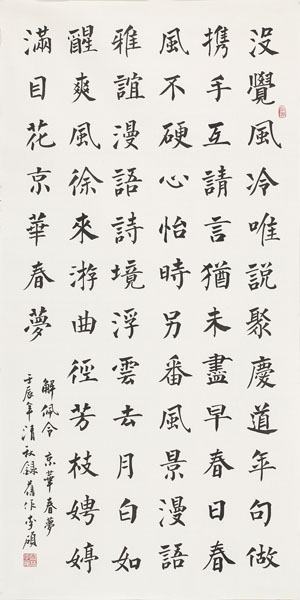 没覺風冷唯說聚慶道年句做
携手互請言猶未盡早春日春
風不硬心怡時另番風景漫語
雅誼漫語詩境浮雲去月白如
醒爽風徐來游曲徑芳枝娉婷
滿目花京華春夢
解佩令 京華春夢
壬辰年清秋錄舊作李碩